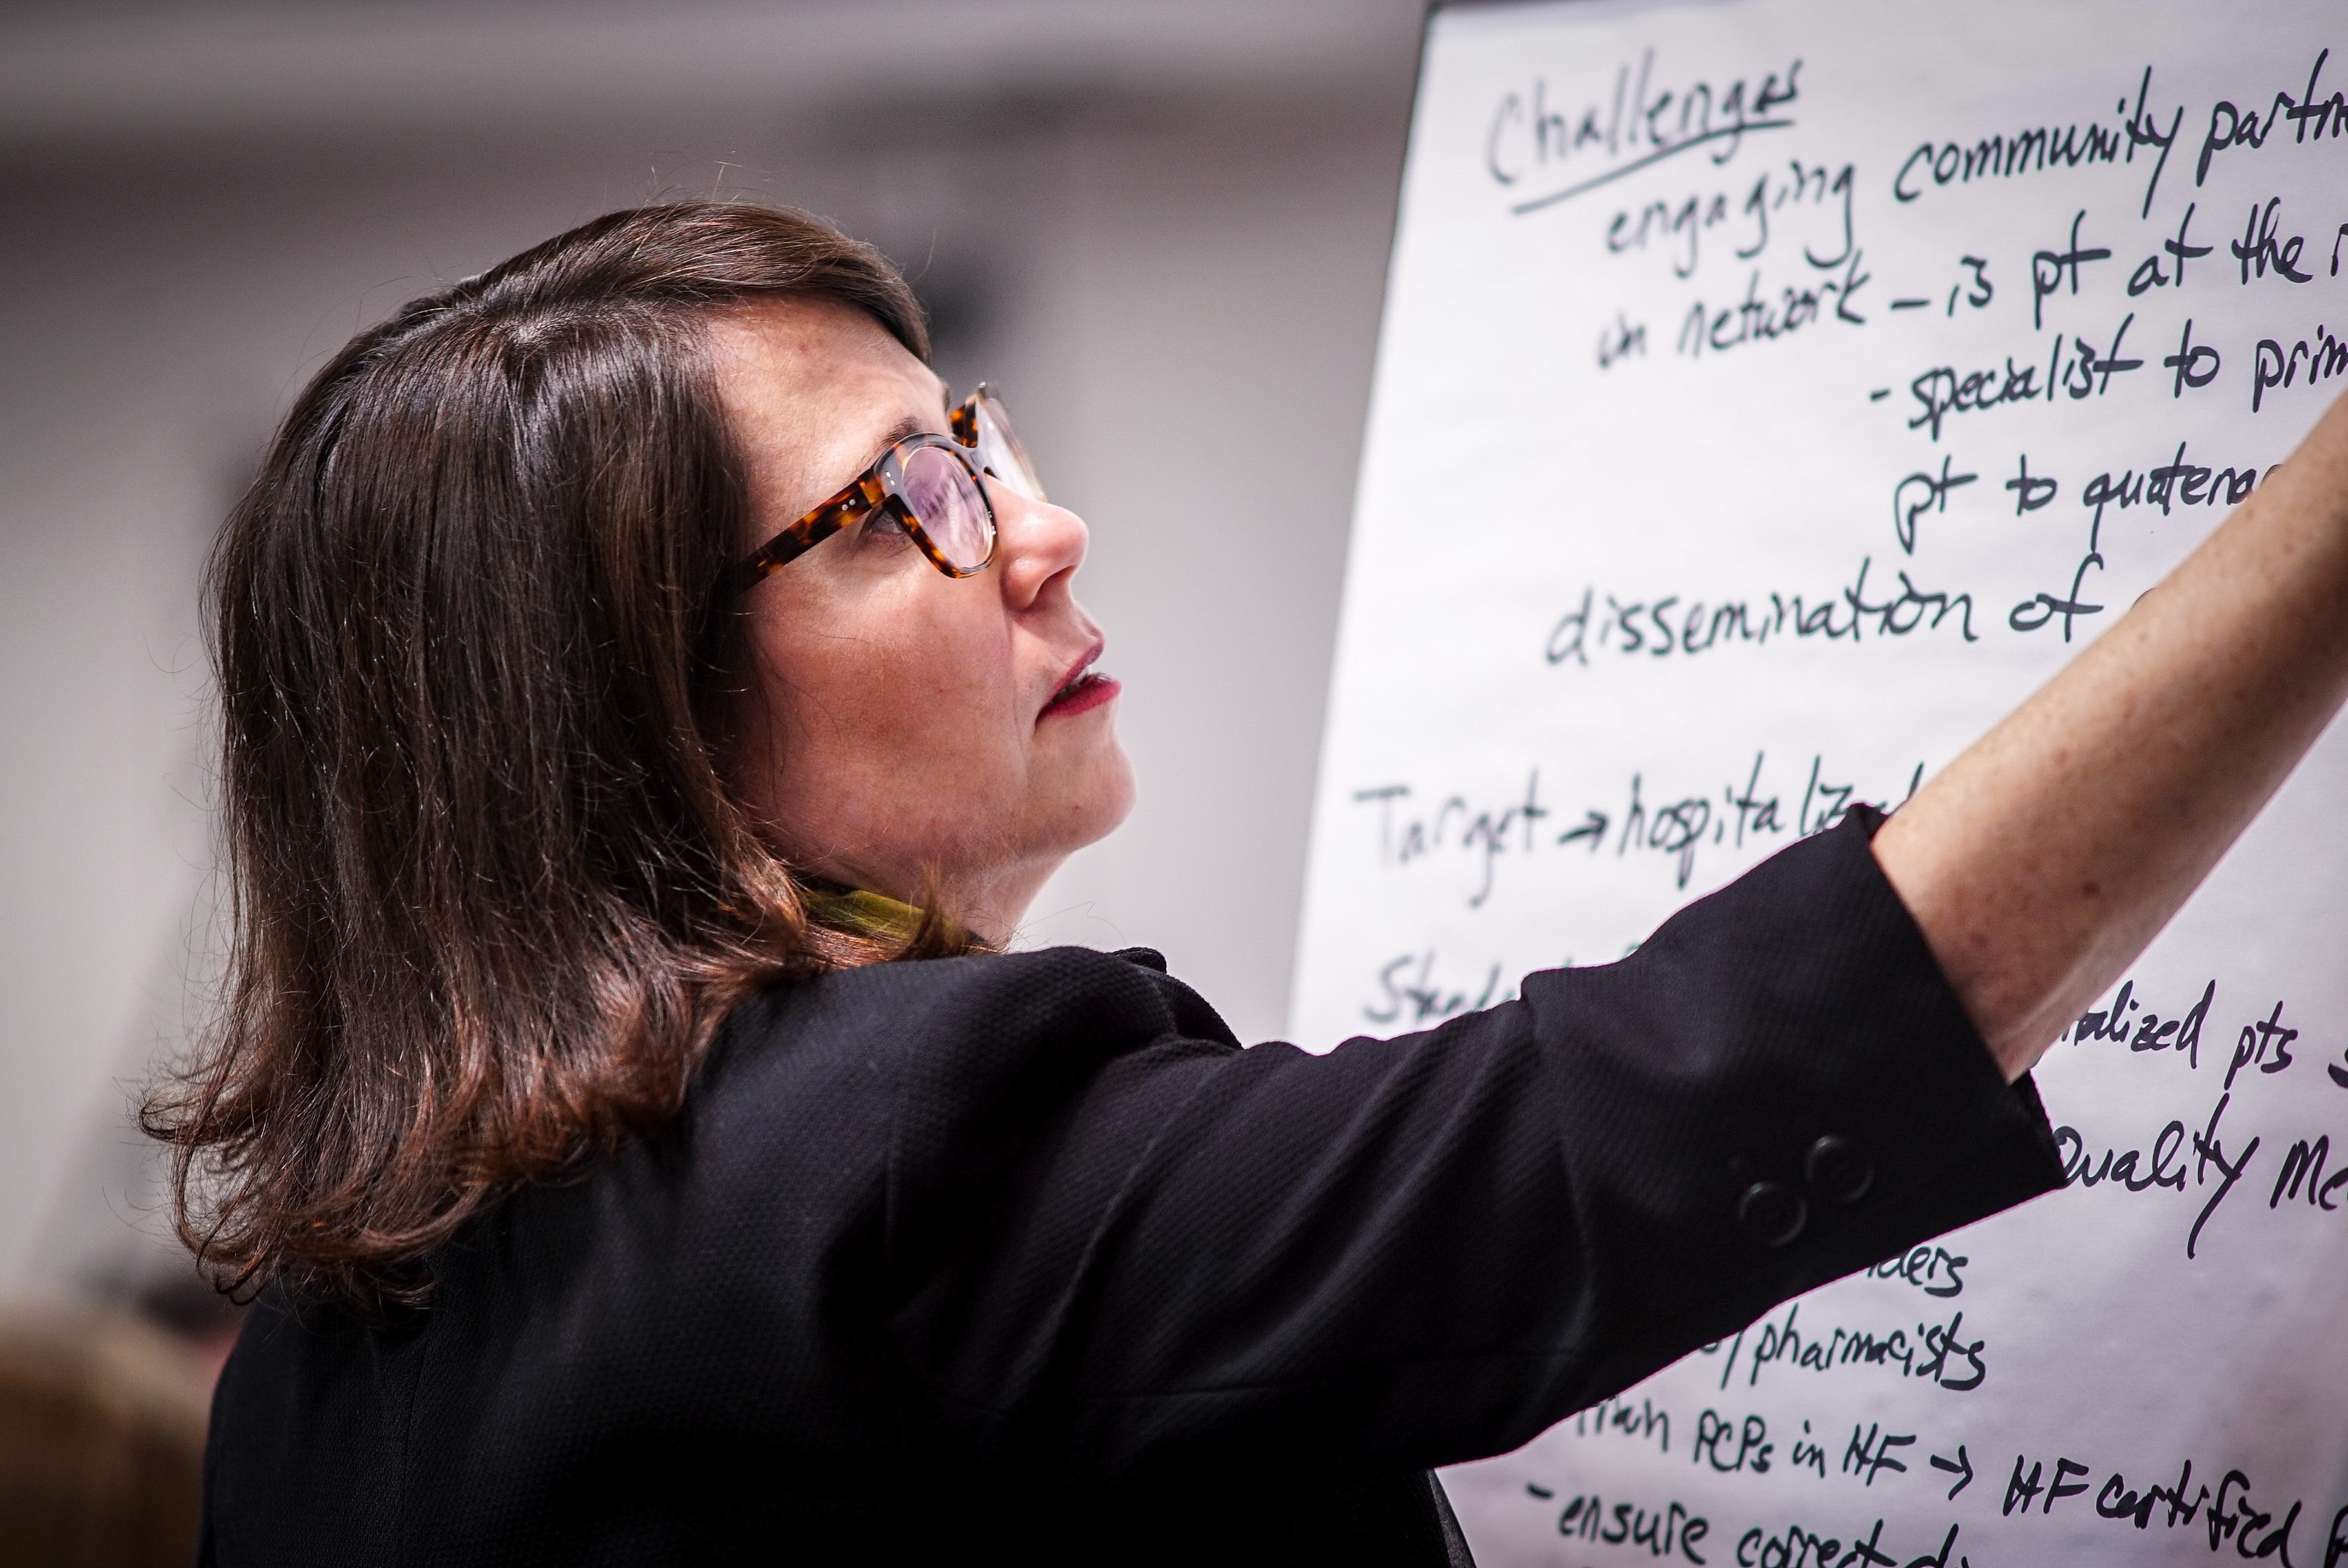 Challenges
engaging community partn
in network - is pt at the r
- specialist to prim
pt to quaterna
dissemination of
Target → hospitaliz
Stand
alized pts
Quality Me
ders
/pharmacists
train PCPs in HF → HF certified
- ensure correct d